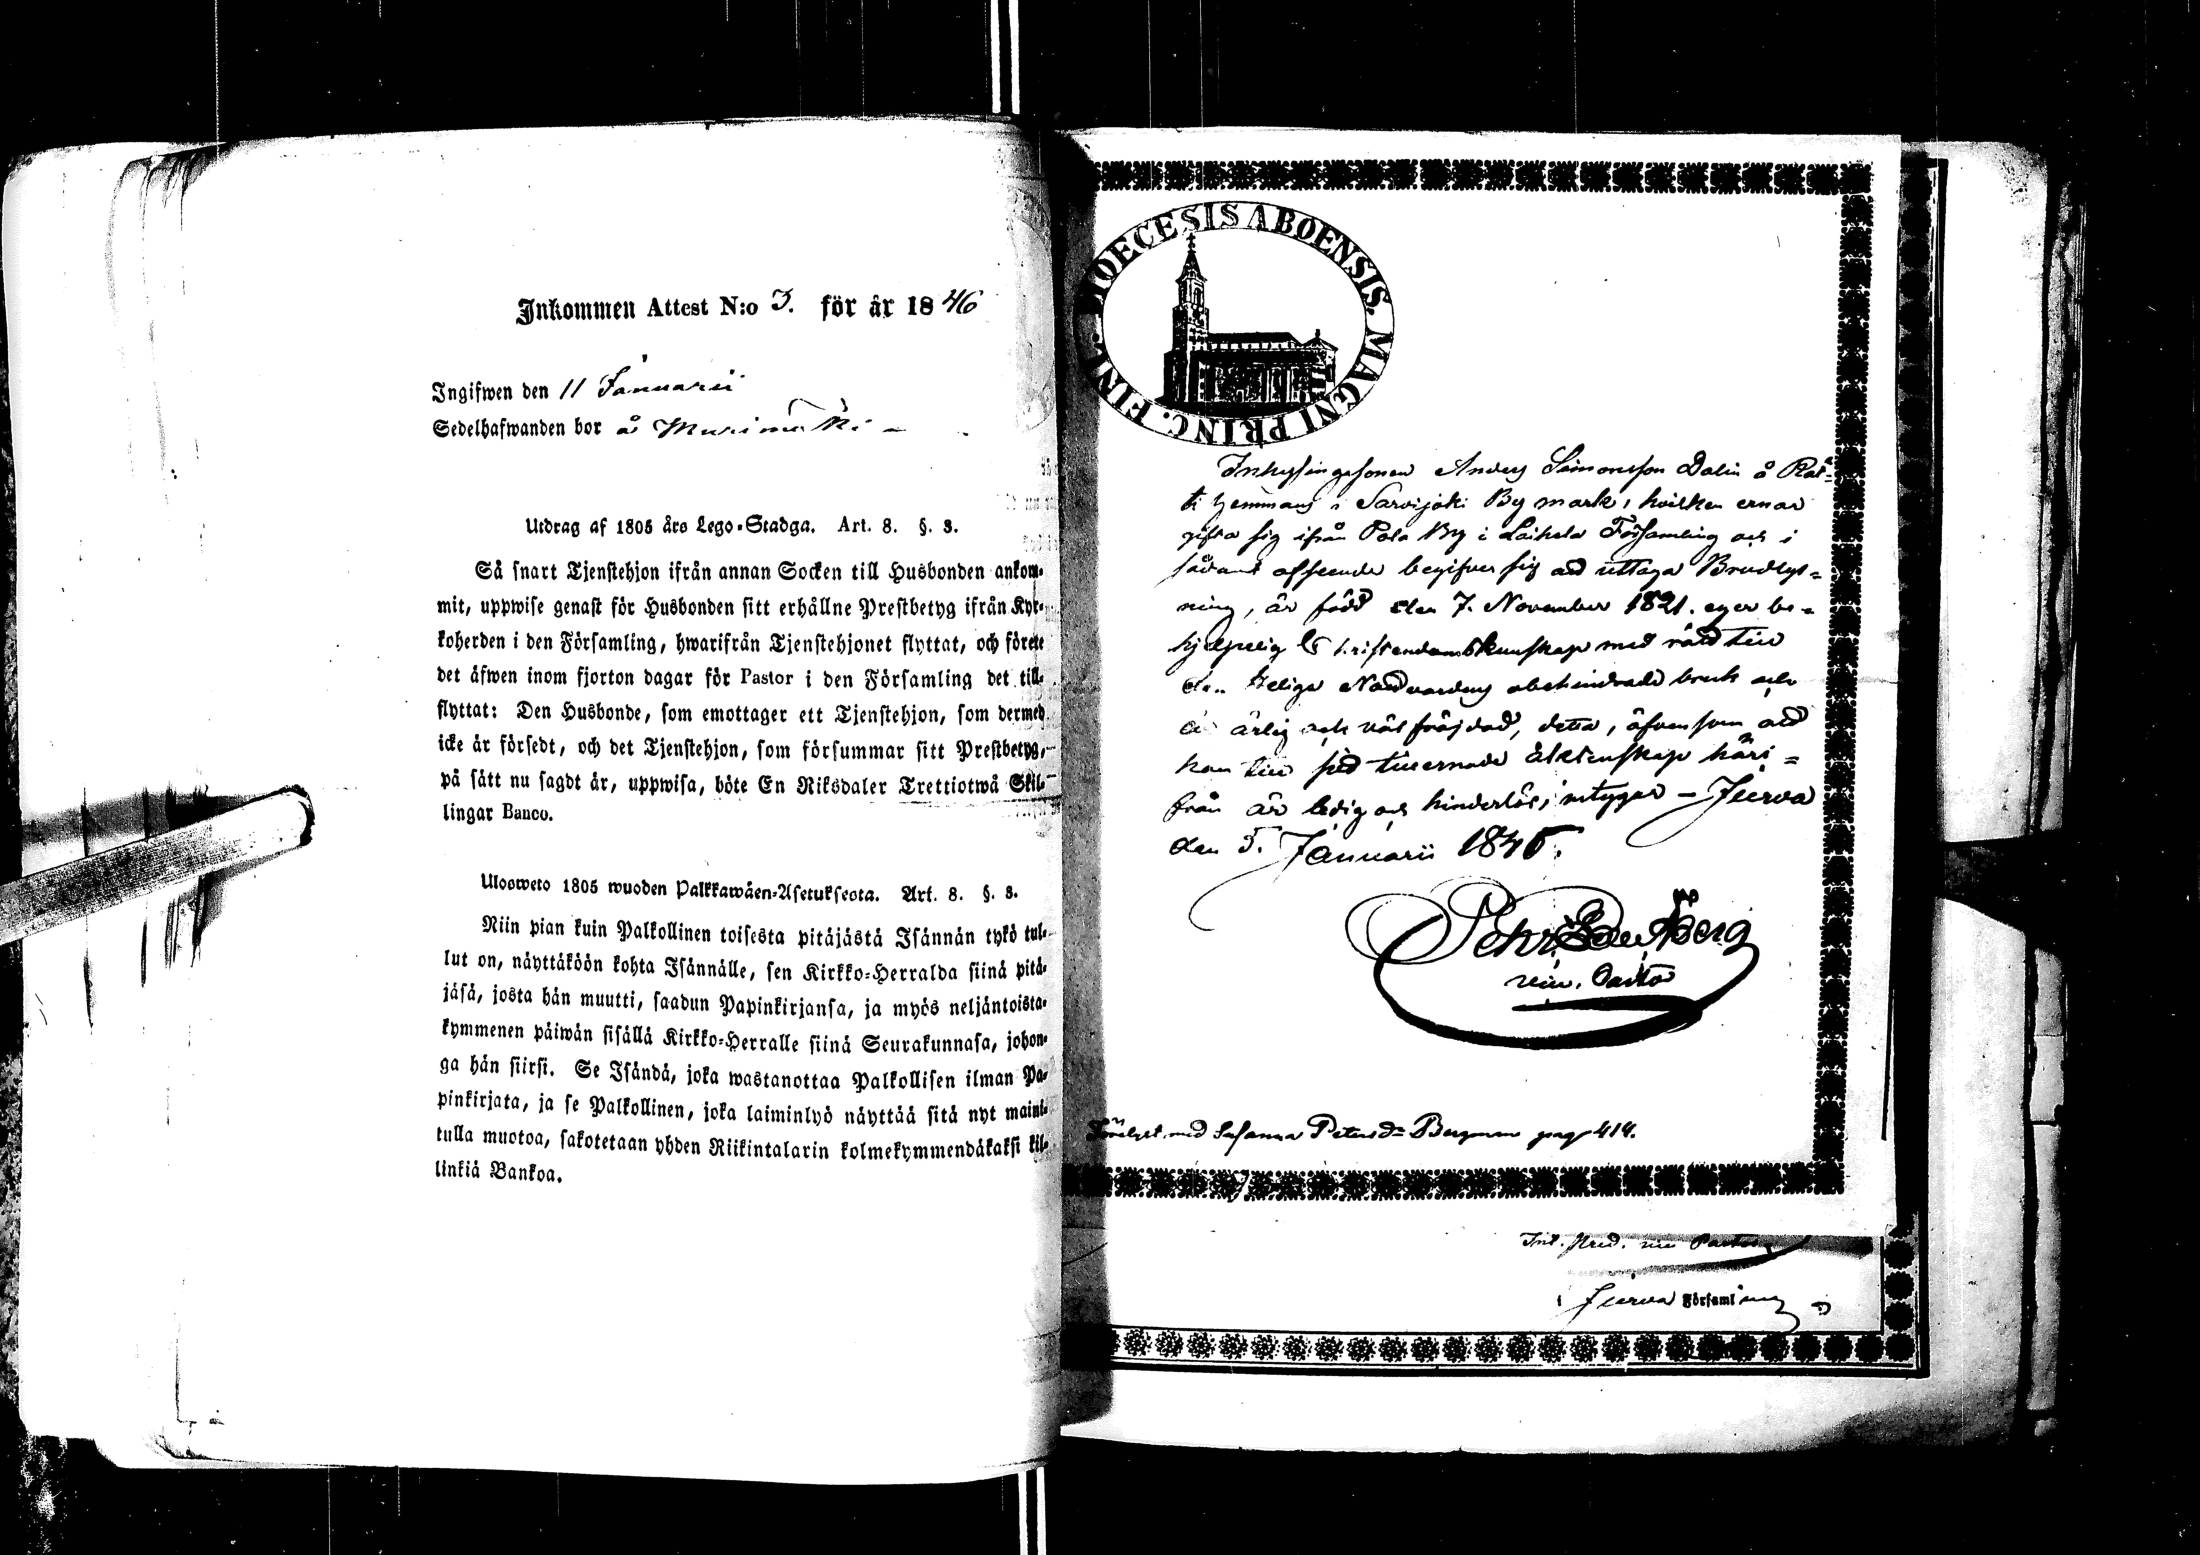 Inkommen Attest N:o 3. för år 1846
Ingifwen den 11 Januarii
Sedelhafwanden bor å
Utdrag af 1805 års Lego-Stadga. Art. 8. §. 3.
Så snart Tjenstehjon ifrån annan Socken till Husbonden ankom-
mit, uppwise genast för Husbonden sitt erhållne Prestbetyg ifrån Kyr-
koherden i den Församling, hwarifrån Tjenstehjonet flyttat, och förete
det äfwen inom fjorton dagar för Pastor i den Församling det till-
flyttat: Den Husbonde, som emottager ett Tjenstehjon, som dermed
icke är försedt, och det Tjenstehjon, som försummar sitt Prestbetyg,
på sätt nu sagdt är, uppwisa, böte En Riksdaler Trettiotwå Skil-
lingar Banco.
Ulosweto 1805 wuoden Palkkawäen-Asetuksesta. Art. 8. §. 3.
Niin pian kuin Palkollinen toisesta pitäjästä Isännän tykö tul-
lut on, näyttäköön kohta Isännälle, sen Kirkko-Herralda siinä pitä-
jäsä, josta hän muutti, saadun Papinkirjansa, ja myös neljäntoista-
kymmenen päiwän sisällä Kirkko-Herralle siinä Seurakunnasa, johon-
ga hän siirsi. Se Isändä, joka wastanottaa Palkollisen ilman Pa-
pinkirjata, ja se Palkollinen, joka laiminlyö näyttää sitä nyt maini-
tulla muotoa, sakotetaan yhden Riikintalarin kolmekymmendäkaksi kil-
linkiä Bankoa.
DIOECESIS ABOENSIS. MAGNI PRINC. FINL.
Inhysingesonen Anders Simonsson Dalin å
hemmans i Sarvijoki By mark, hvilken ernar
gifta sig ifrån Pola By i Laihela Församling och i
sådant afseende begifver sig att uttaga Brudlys-
ning, är född den 7. November 1821. eger be-
hjelpelig Christendomskunskap med rätt till
den Heliga Nattvardens obehindrade bruk och
är ärlig och väl fräjdad, detta, äfvensom att
han till sitt tillernade Äktenskap häri-
från är ledig och hinderlös, intygar – Jurva
den 5. Januarii 1846.
Pehr
vice. Pastor
med Susanna Petersdr Bergman pag 414.
vice Pastor
Jurva Församling